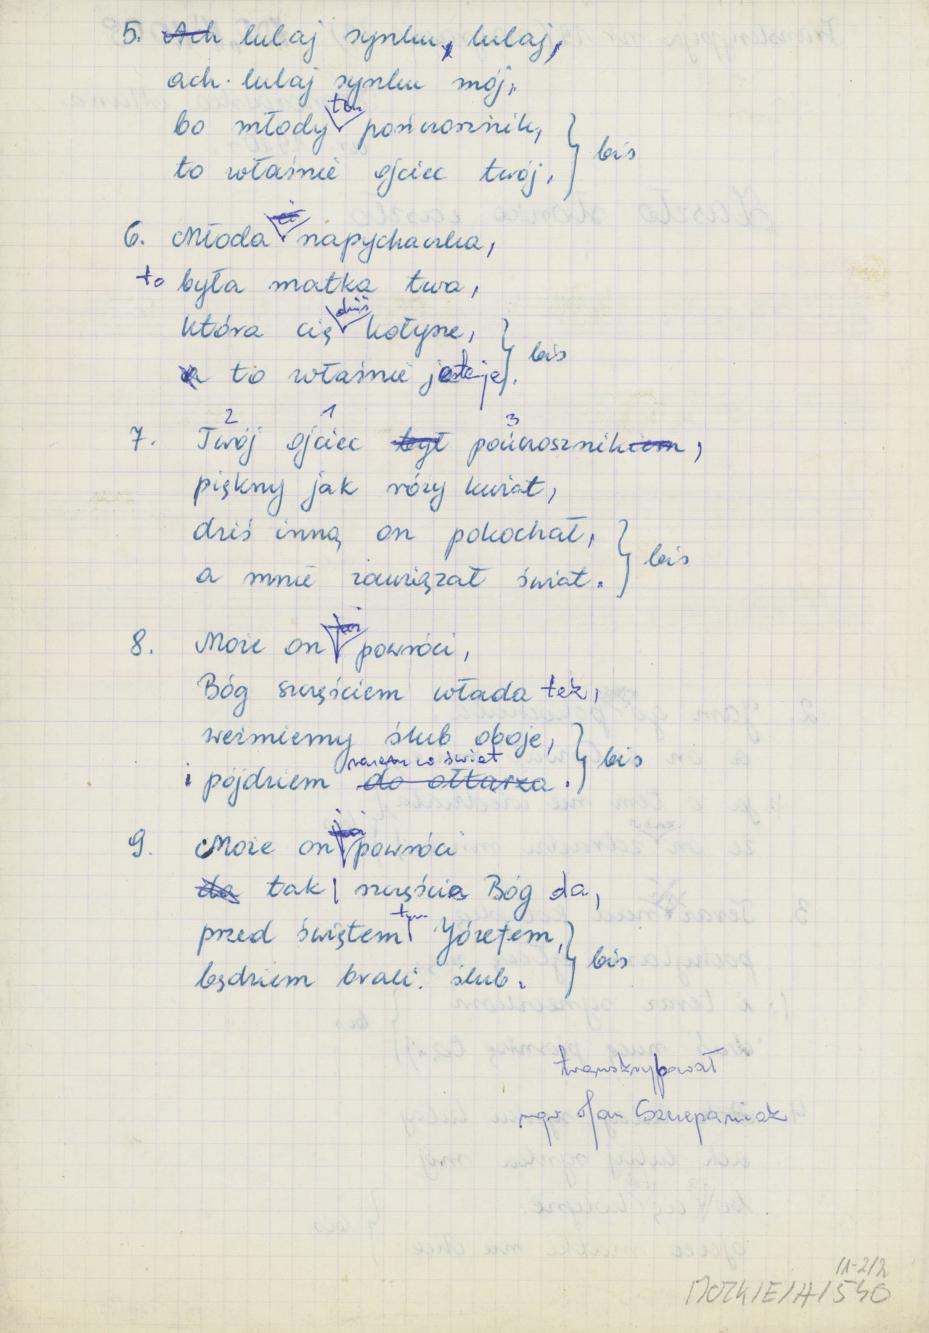 5. Ach lulaj synku, lulaj,
ach lulaj synku mój,
ten
bo młody pończosznik,
to właśnie ojciec twój, } bis
ci
6. Młoda napychaczka,
to była matka twa,
dziś
która cię kołysze,
a to właśnie jestem ja. } bis
2 1 3
7. Twój ojciec był pończosznikiem,
piękny jak róży kwiat,
dziś inną on pokochał,
a mnie zawiązał świat. } bis
już
8. Może on powróci,
Bóg szczęściem włada też,
weźmiemy ślub oboje,
razem w świat
i pójdziem do ołtarza. } bis
już
9. Może on powróci
da tak, szczęście Bóg da,
tym
przed świętem Józefem,
będziem brali ślub. } bis
transkrybował
mgr Jan Szczepaniak
11-2/2
MOZK/E/A/540